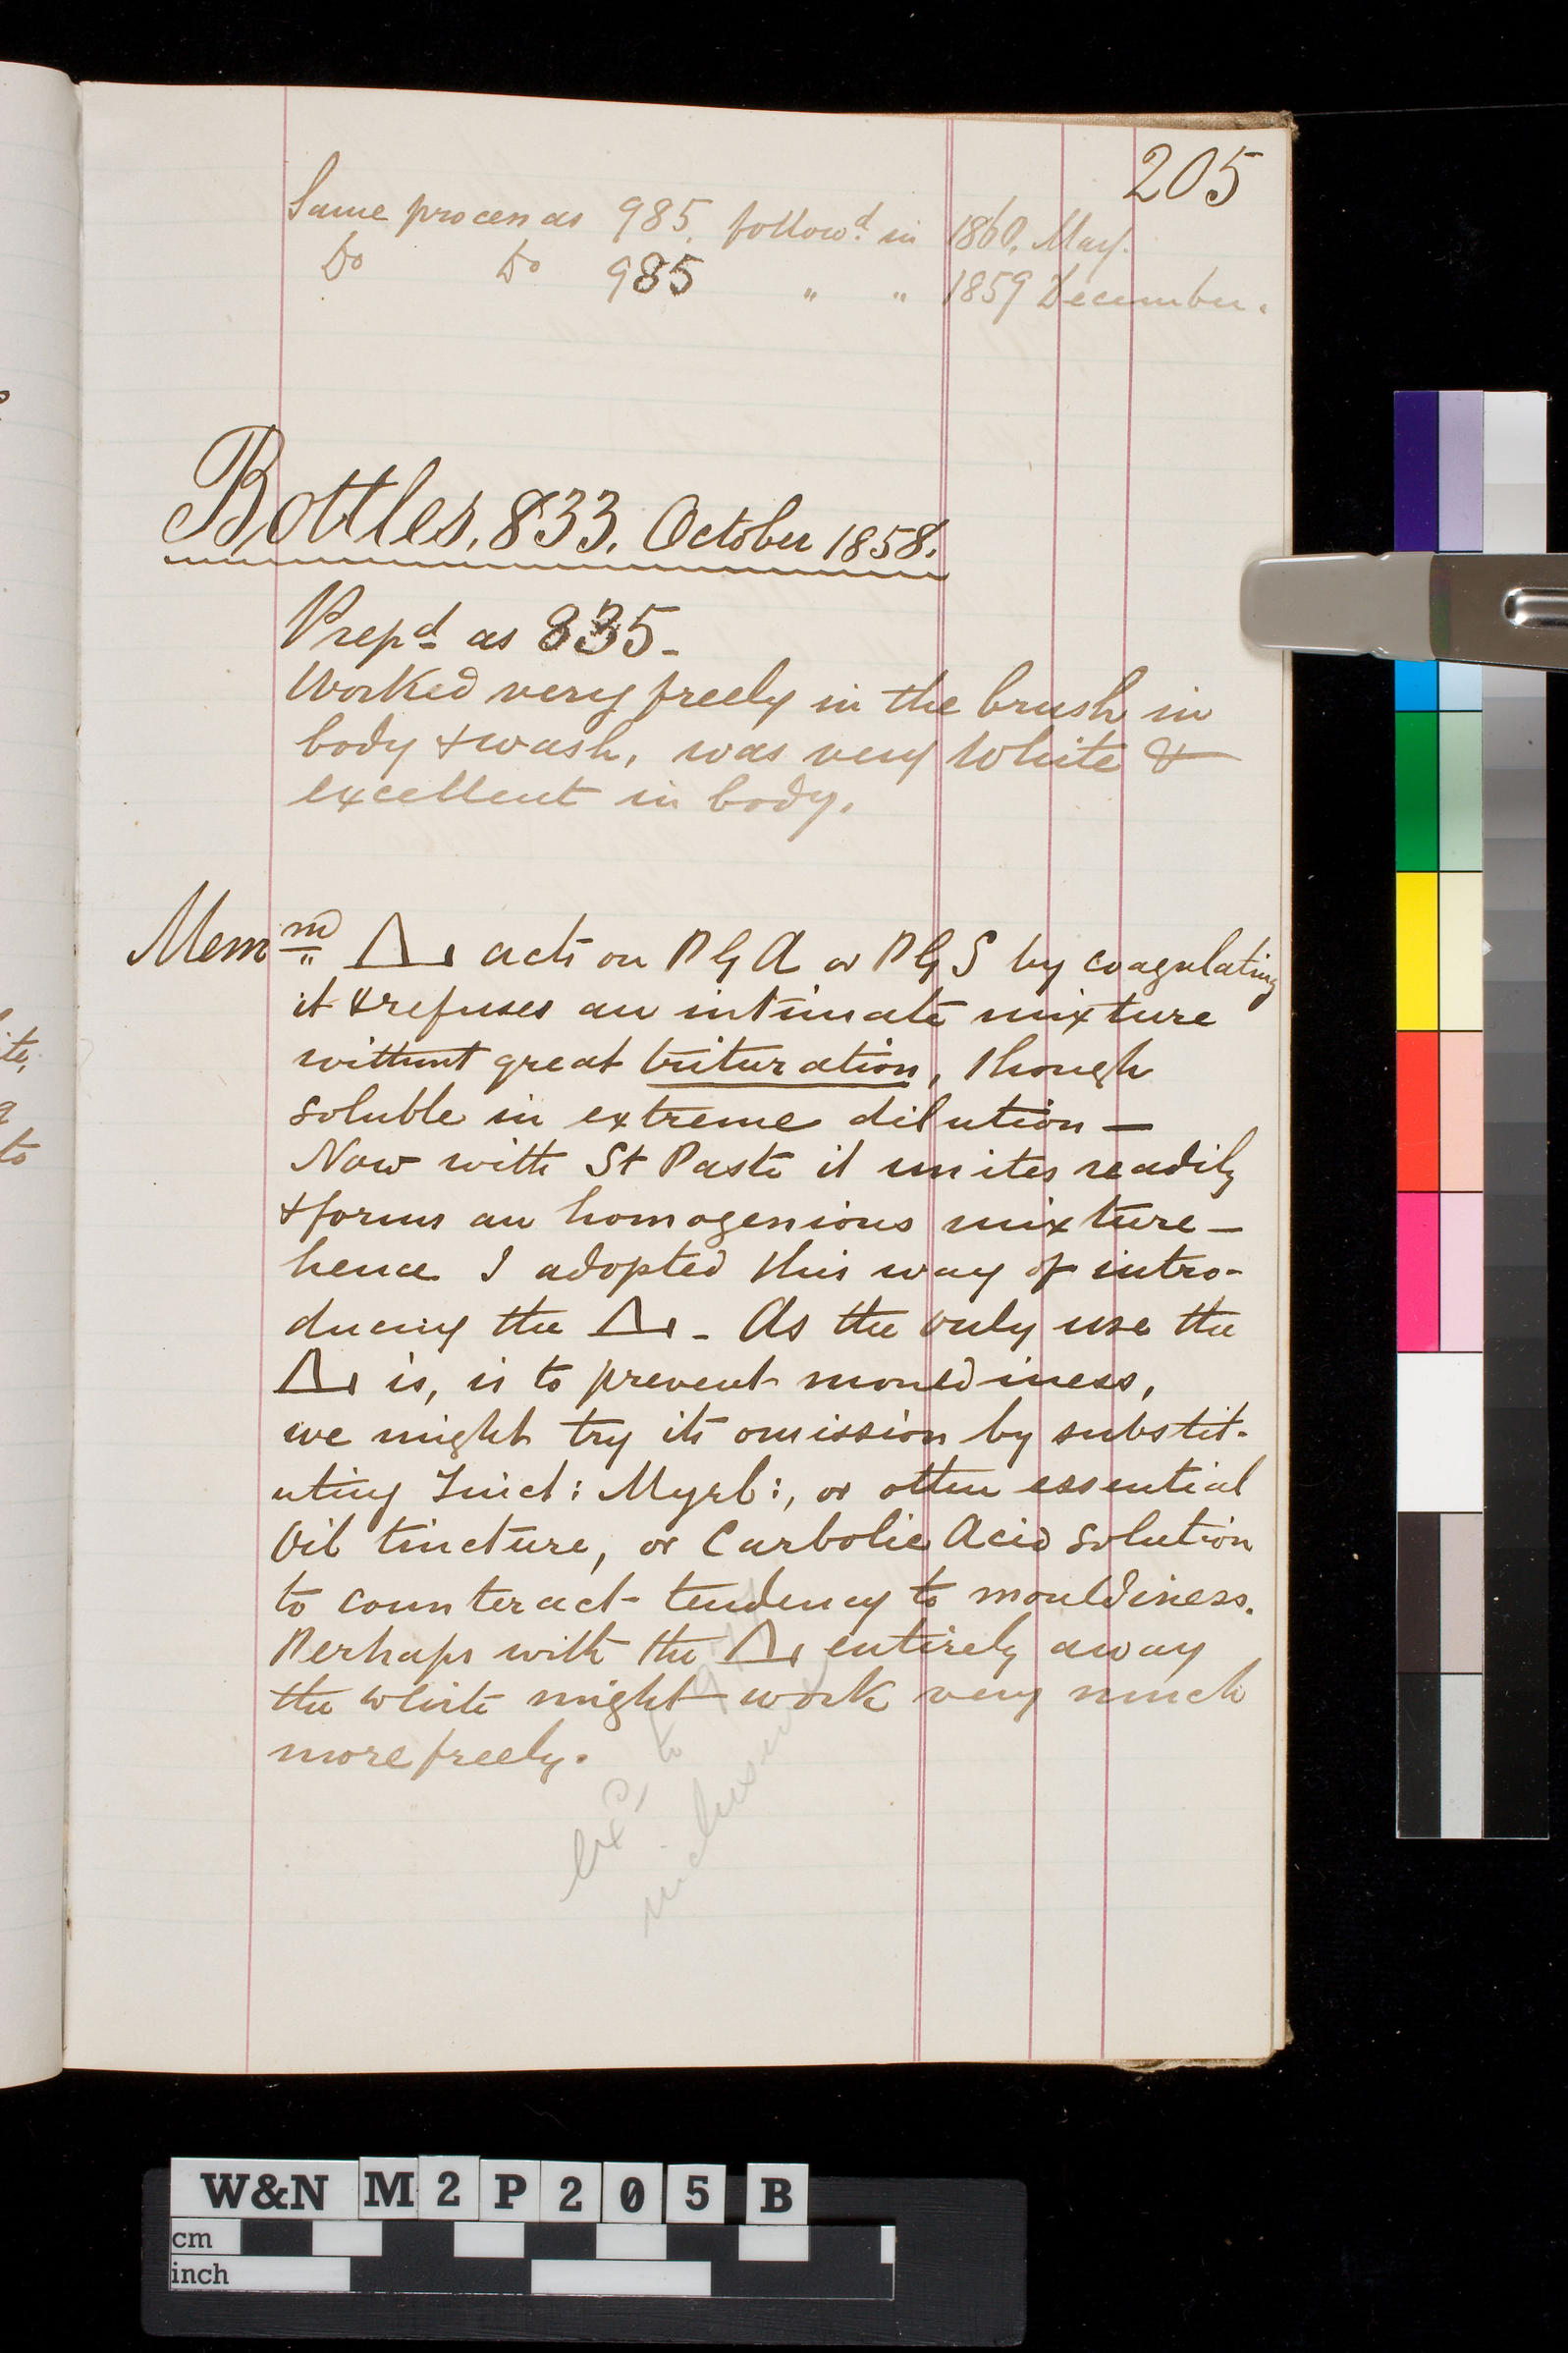 205
Same process as 985. follow.d in 1860, May.
Do Do 985 " " 1859 December.
Bottles, 833. October 1858.
Prepd as 835-
Worked very freely in the brush in
body & wash, was very White &
excellent in body.
Memm Δ acts on P G A or P G S by coagulating
it & refuses an intimate mixture
without great trituration, though
soluble in extreme dilution —
Now with St Paste it unites readily
& forms an homogenious mixture —
hence I adopted this way of intro-
ducing the Δ - As the only use the
Δ is, is to prevent mouldiness,
we might try its omission by substit-
uting Tinct: Myrh:, or other essential
Oil tincture, or Carbolic Acid solution
to counteract tendency to mouldiness.
Perhaps with the Δ entirely away
the White might work very much
more freely.
Exd to
inclusive
W&N M2P205B
cm
inch